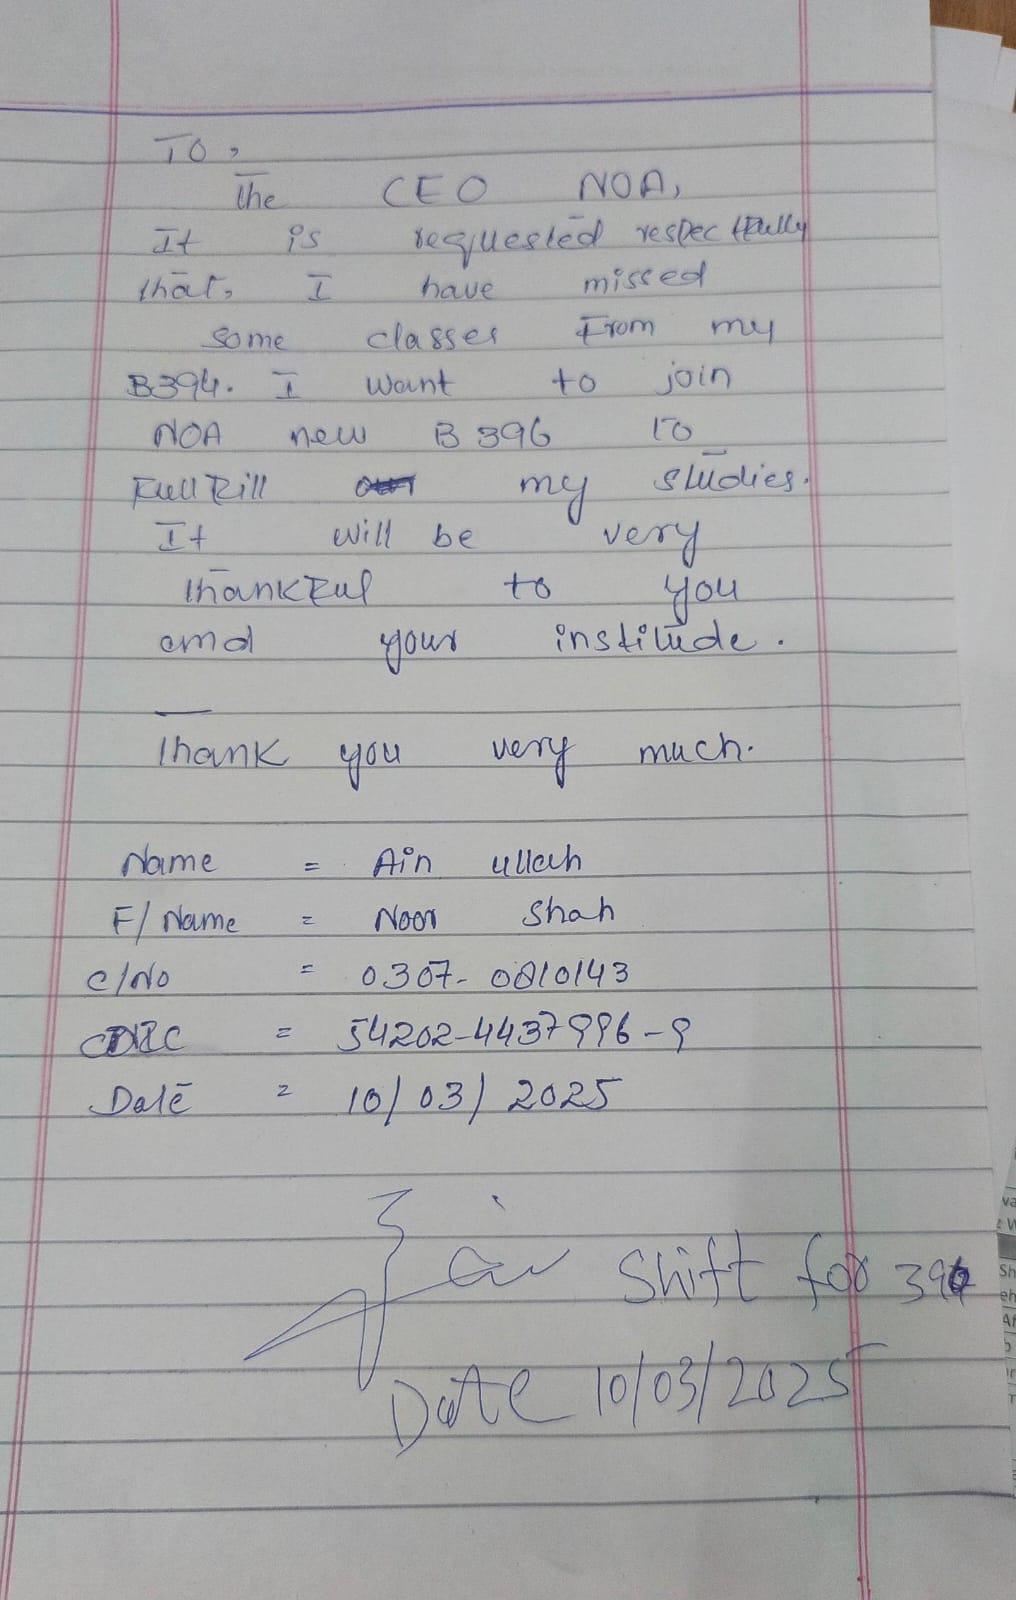 TO,
The CEO NOA,
It is requested respectfully
that, I have missed
some classes From my
B394. I want to join
NOA new B 396 to
Full Fill my studies.
It will be very
thankful to you
and your institude.
Thank you very much.
Name = Ain ullah
F/ Name = Noor Shah
C/No = 0307-0810143
CNIC = 54202-4437996-9
Date = 10/03/2025
Shift for 396
Date 10/03/2025